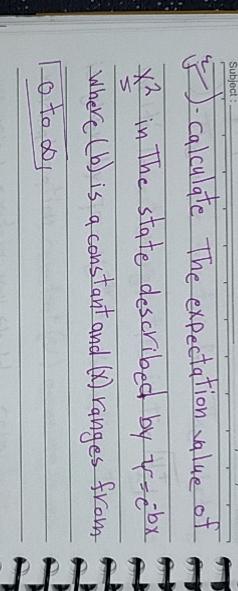 Subject:
calculate The expectation value of
x² in The state described by ψ=e^-bx
where (b) is a constant and (x) ranges from
0 to ∞,